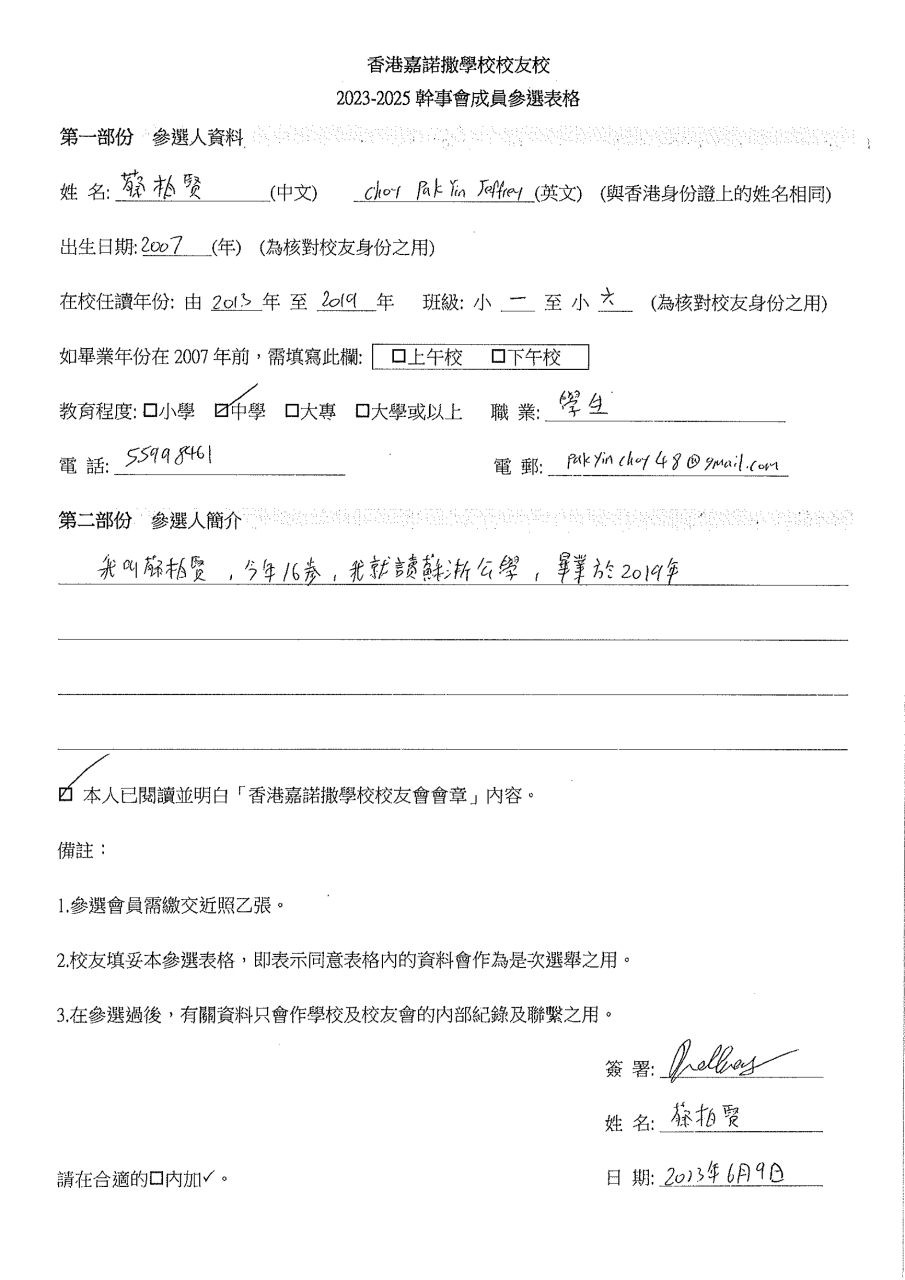 香港嘉諾撒學校校友校
2023-2025 幹事會成員參選表格
第一部份 參選人資料
姓 名: 蔡柏賢 (中文) Choy Pak Yin Jeffrey (英文) (與香港身份證上的姓名相同)
出生日期: 2007 (年) (為核對校友身份之用)
在校任讀年份: 由 2013 年 至 2019 年 班級: 小 一 至 小 六 (為核對校友身份之用)
如畢業年份在 2007 年前，需填寫此欄: □上午校 □下午校
教育程度: □小學 ☑中學 □大專 □大學或以上 職 業: 學生
電 話: 55998461 電 郵: pakyinchoy48@gmail.com
第二部份 參選人簡介
我叫蔡柏賢，今年16歲，我就讀蘇浙公學，畢業於2019年
☑ 本人已閱讀並明白「香港嘉諾撒學校校友會會章」內容。
備註：
1.參選會員需繳交近照乙張。
2.校友填妥本參選表格，即表示同意表格內的資料會作為是次選舉之用。
3.在參選過後，有關資料只會作學校及校友會的內部紀錄及聯繫之用。
簽 署:
姓 名: 蔡柏賢
請在合適的□內加✓。 日 期: 2023年6月9日